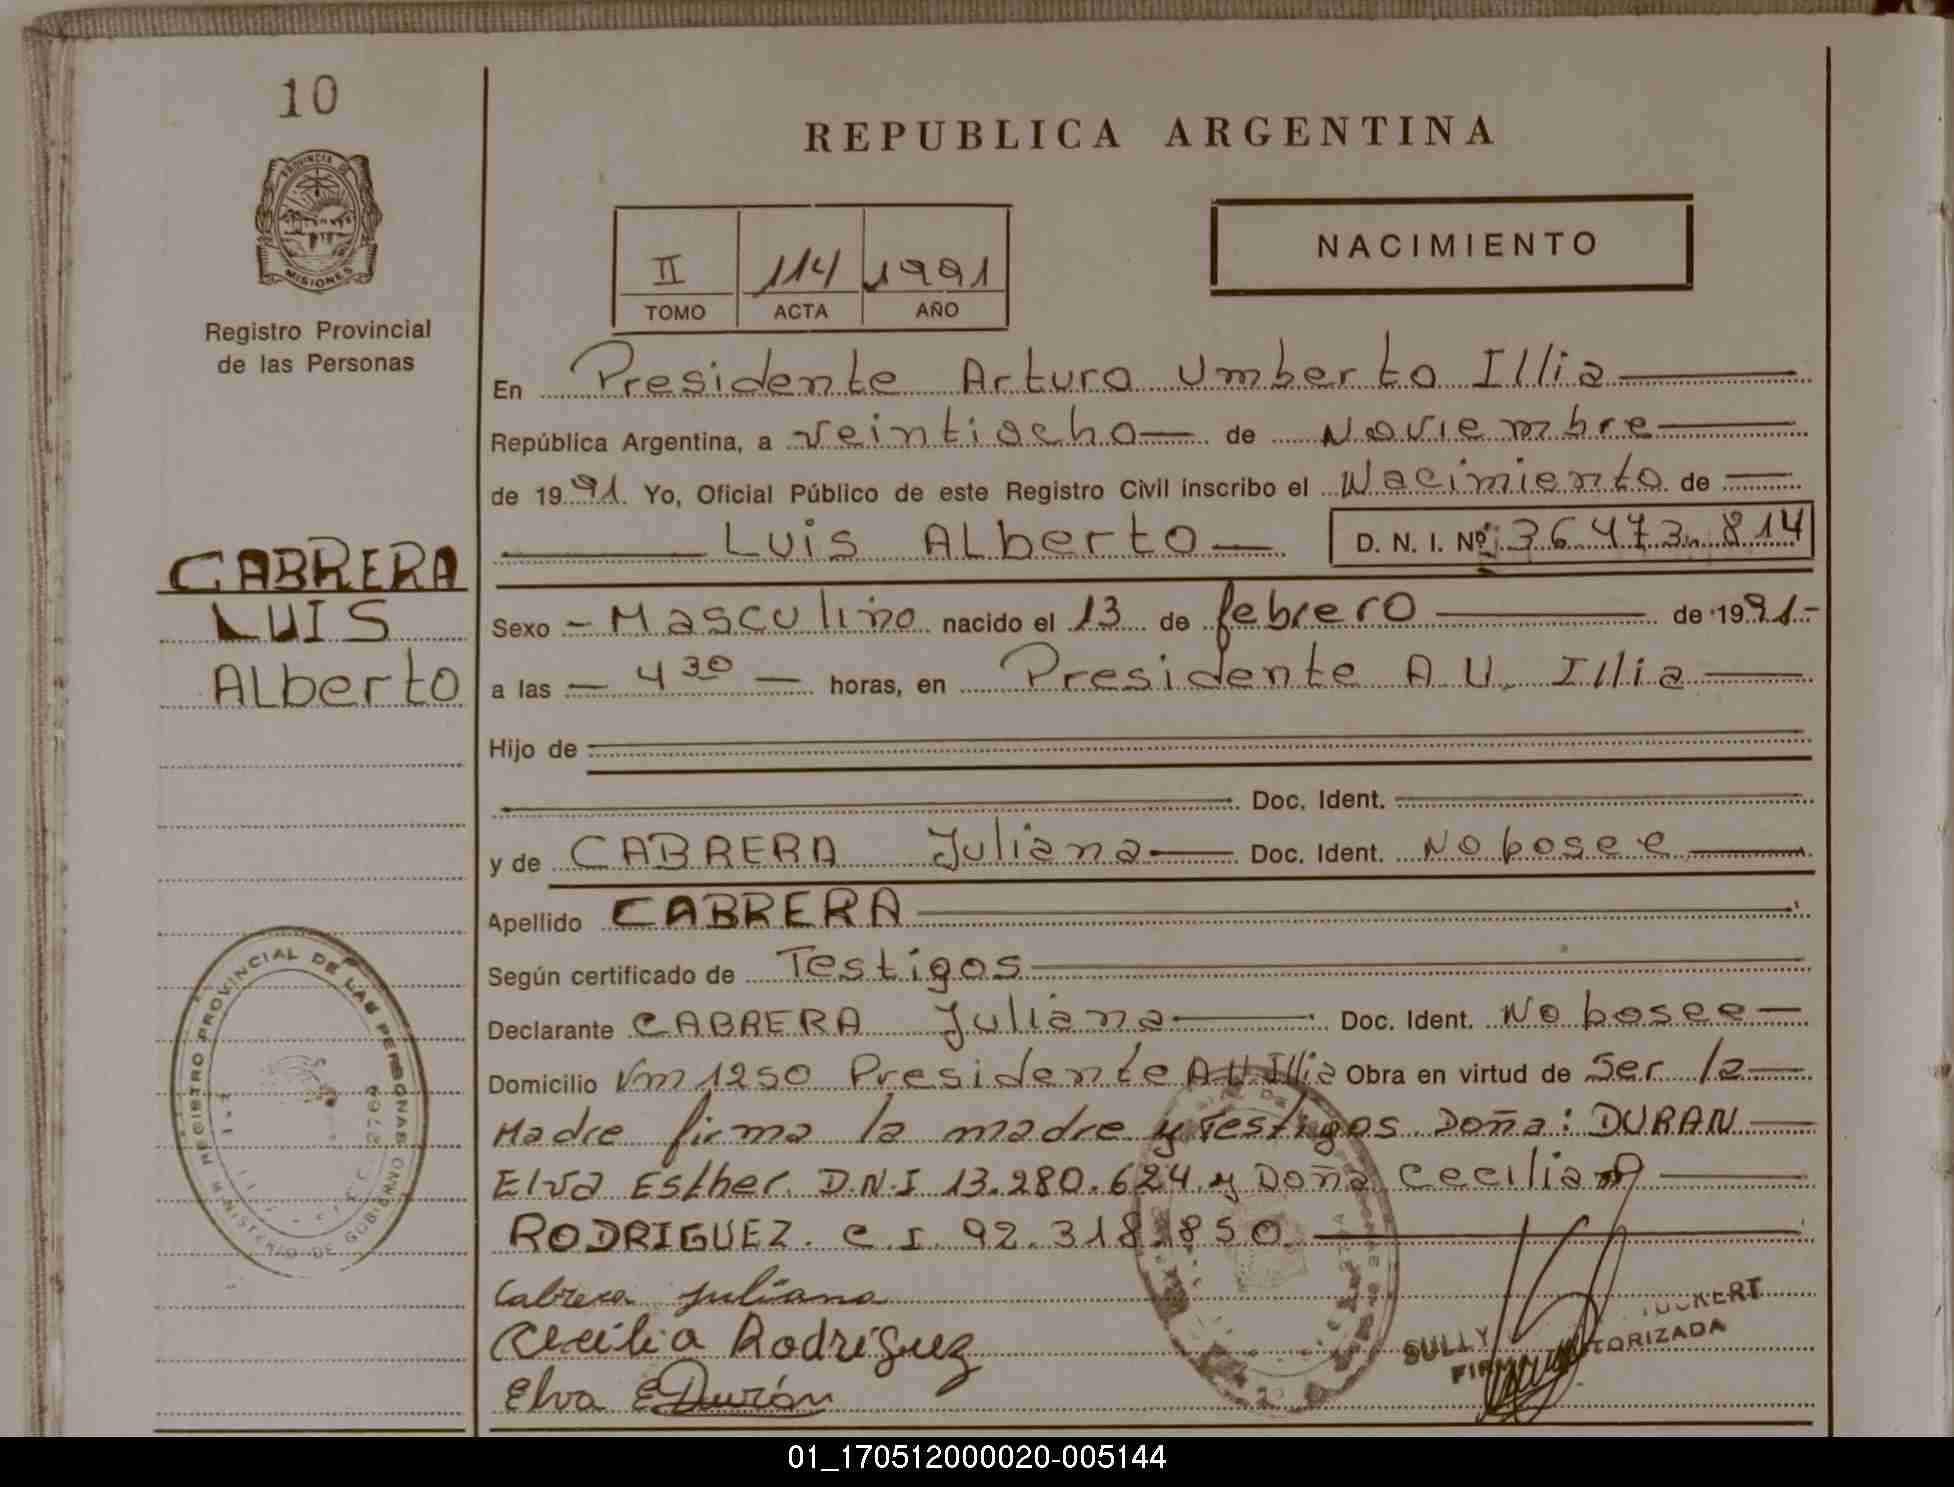 10
PROVINCIA DE
MISIONES
Registro Provincial
de las Personas
CABRERA
LUIS
Alberto
REGISTRO PROVINCIAL DE LAS PERSONAS
MINISTERIO DE GOBIERNO
REPUBLICA ARGENTINA
II 114 1991
TOMO ACTA AÑO
NACIMIENTO
En Presidente Arturo Umberto Illia
República Argentina, a veintiocho de Noviembre
de 1991. Yo, Oficial Público de este Registro Civil inscribo el Nacimiento de
Luis Alberto D. N. I. Nº 36.473.814
Sexo - Masculino nacido el 13 de febrero de 1991.-
a las - 4 30 - horas, en Presidente A.U. Illia
Hijo de
Doc. Ident.
y de CABRERA Juliana Doc. Ident. No posee
Apellido CABRERA
Según certificado de Testigos
Declarante CABRERA Juliana Doc. Ident. No posee
Domicilio Km 1250 Presidente A.U. Illia Obra en virtud de Ser la
Madre firma la madre y Testigos Doña: DURAN
Elva Esther D.N.I 13.280.624 y Doña Cecilia
RODRIGUEZ. C.I. 92.318.850
Cabrera Juliana
Cecilia Rodríguez
Elva E Durán
SULLY
FIRMA AUTORIZADA
01_170512000020-005144